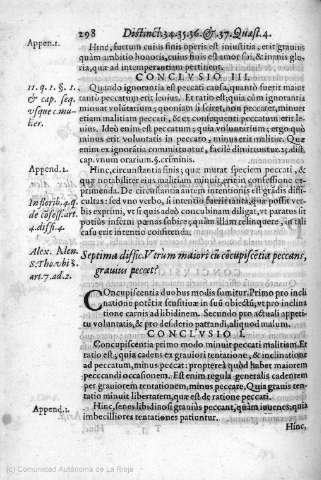 298 Distinct. 34. 35. 36. & 37. Quæst. 4.
Appen. 1.
Hinc, furtum cuius finis operis est iniustitia, erit grauius
quàm ambitio honoris, cuius finis est amor sui, & inanis glo
ria, quæ ad intemperantiam pertinent.
CONCLVSIO III.
11. q. 1. §. 1.
& cap. seq.
vsque c. mu-
lier.
Quando ignorantia est peccati causa, quantò fuerit maior
tantò peccatum erit leuius. Et ratio est; quia cùm ignorantia
minuat voluntarium; quoniam si sciret, non peccaret, minuet
etiam malitiam peccati, & ex consequenti peccatum erit le-
uius. Ideò enim est peccatum; quia voluntarium; ergo quò
minus erit voluntatis in peccato, minus erit malitiæ. Quæ
enim ex ignorãtia committuntur, facilè diluuntur. 25. dist.
cap. vnum orarium. §. criminis.
Append. 1.
Hinc, circunstantia finis; quæ mutat speciem peccati, &
quæ notabiliter eius malitiam minuit, erit in confessione ex-
primenda. De circunstantia autem intentionis est gradis diffi-
cultas:
In sfor. 4. q.
de cõfess. art.
4. diffi. 4.
sed vno verbo, si intentio fuerit tanta, quæ possit ver-
bis exprimi, vt si quis adeò concubinam diligat, vt paratus sit
nobilis infernis damnari, quàm illam relinquere, in tali
casu erit intentio confitenda.
Alex. Alen.
S. Tho. vbi s.
art. 7. ad. 2.
Septima diffic. Vtrum maiori cũ cõcupiscẽtia peccans,
grauius peccet?
COncupiscentia duobus modis sumitur. Primo pro incli
natione potẽtiæ sensitiuæ in suũ obiectũ, vt pro inclina
tione carnis ad libidinem. Secundo pro actuali appeti-
tu voluntatis, & pro desiderio patrandi, aliquod malum.
CONCLVSIO I.
Concupiscentia primo modo minuit peccati malitiam. Et
ratio est, quia cadens ex grauiori tentatione, & inclinatione
ad peccatum, minus peccat: propterea quòd habet maiorem
peccandi occasionem. Est enim regula generalis cadentem
per grauiorem tentationem, minus peccare. Quia grauis ten-
tatio minuit libertatem, quæ est de ratione peccati.
Append. 1.
Hinc, senes libidinosi grauiùs peccant, quàm iuuenes; quia
imbecilliores tentationes patiuntur.
Hinc,
(c) Comunidad Autónoma de La Rioja